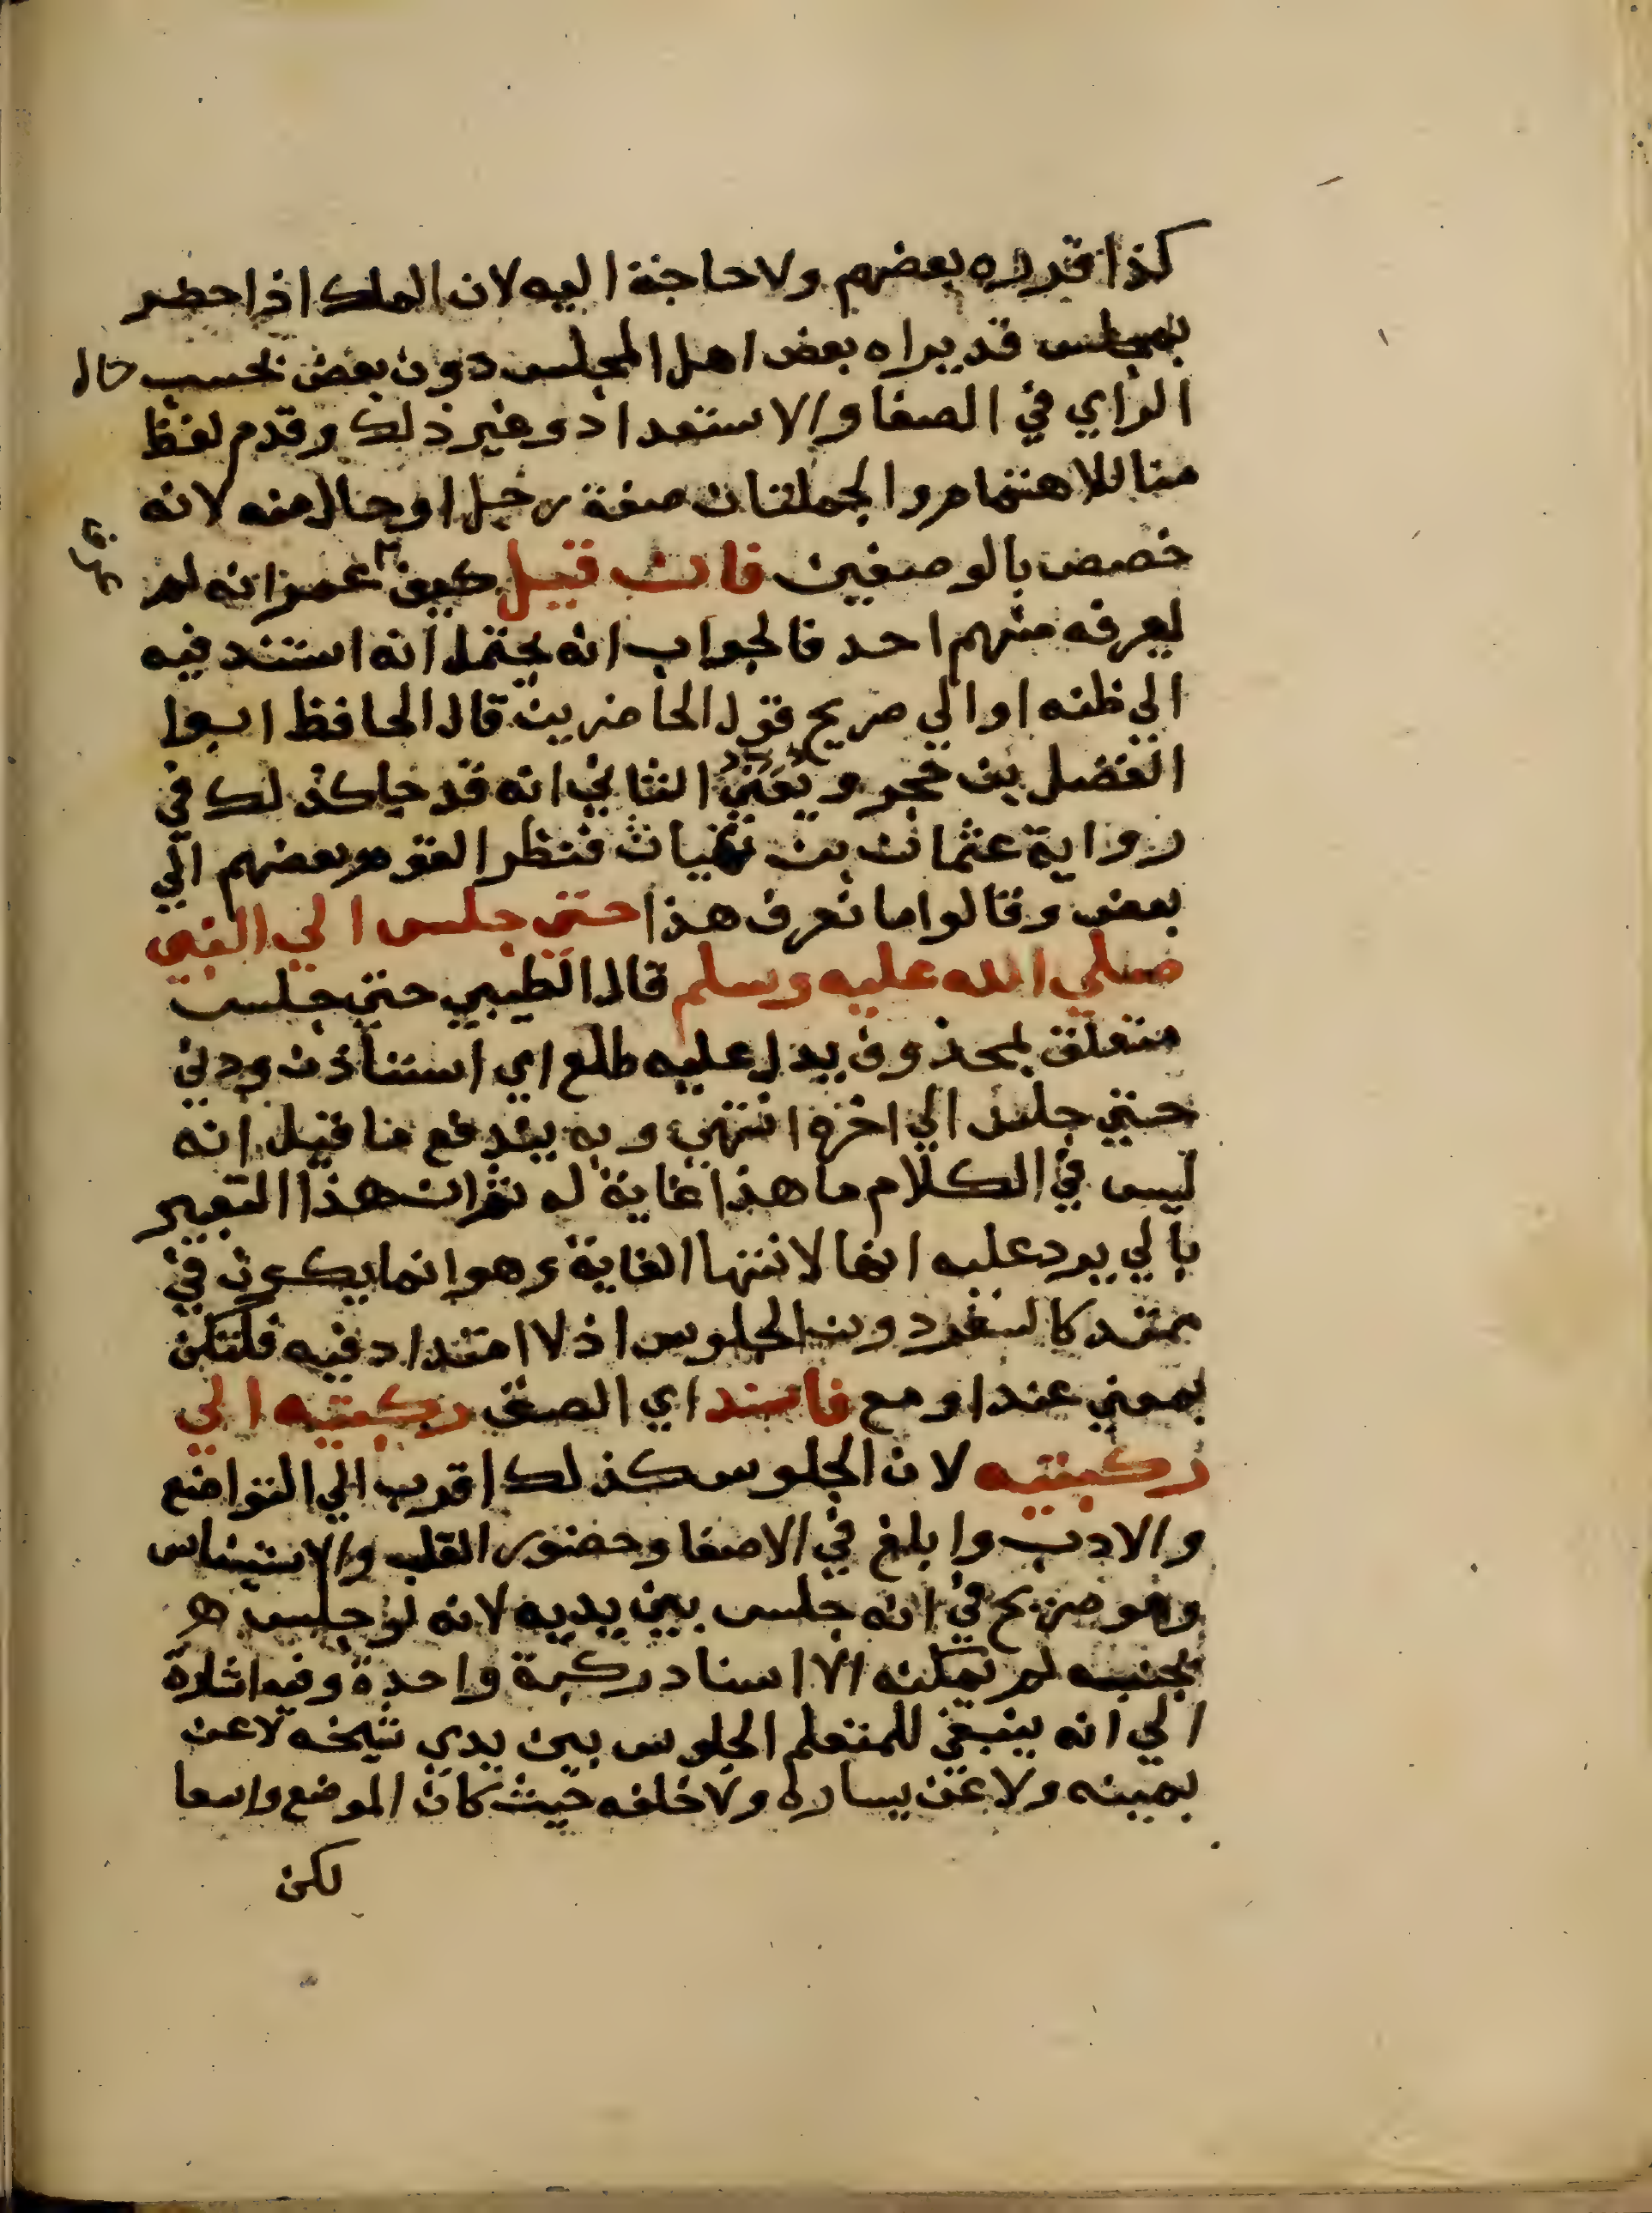 كذا قدره بعضهم ولا حاجة اليه لان الملك اذا حضر
بمجلس قد يراه بعض اهل المجلس دون بعض بحسب حال
الراي في الصفا والاستعداد وغير ذلك وقدم لفظ
منا للاهتمام والجملتان صفة رجل او حال منه لانه
خصص بالوصفين فان قيل كيف عمر انه لم
يعرفه منهم احد فالجواب انه يحتمل انه استند فيه
الي ظنه او الي صريح قول الحاضرين قال الحافظ ابوا
الفضل بن حجر ويعين الثاني انه قد جا كذلك في
رواية عثمان بن غياث فنظر القوم بعضهم الي
بعض وقالوا ما نعرف هذا حتي جلس الي النبي
صلي الله عليه وسلم قال الطيبي حتي جلس
متعلق بمحذوف يدل عليه طلع اي استاذن ودني
حتي جلس الي اخره انتهي وبه يندفع ما قيل انه
ليس في الكلام ما هذا غاية له ثم ان هذا التعبير
بالي يرد عليه انها لانتها الغاية وهو انما يكون في
ممتد كالسفر دون الجلوس اذ لا امتداد فيه فلتكن
بمعني عند او مع فاسند اي الصق ركبتيه الي
ركبتيه لان الجلوس كذلك اقرب الي التواضع
والادب وابلغ في الاصغا وحضور القلب والاستيناس
وهو صريح في انه جلس بين يديه لانه لو جلس
بجنبه لم يمكنه الا اسناد ركبة واحدة وفيه اشارة
الي انه ينبغي للمتعلم الجلوس بين يدي شيخه لا عن
يمينه ولا عن يساره ولا خلفه حيث كان الموضع واسعا
لكن